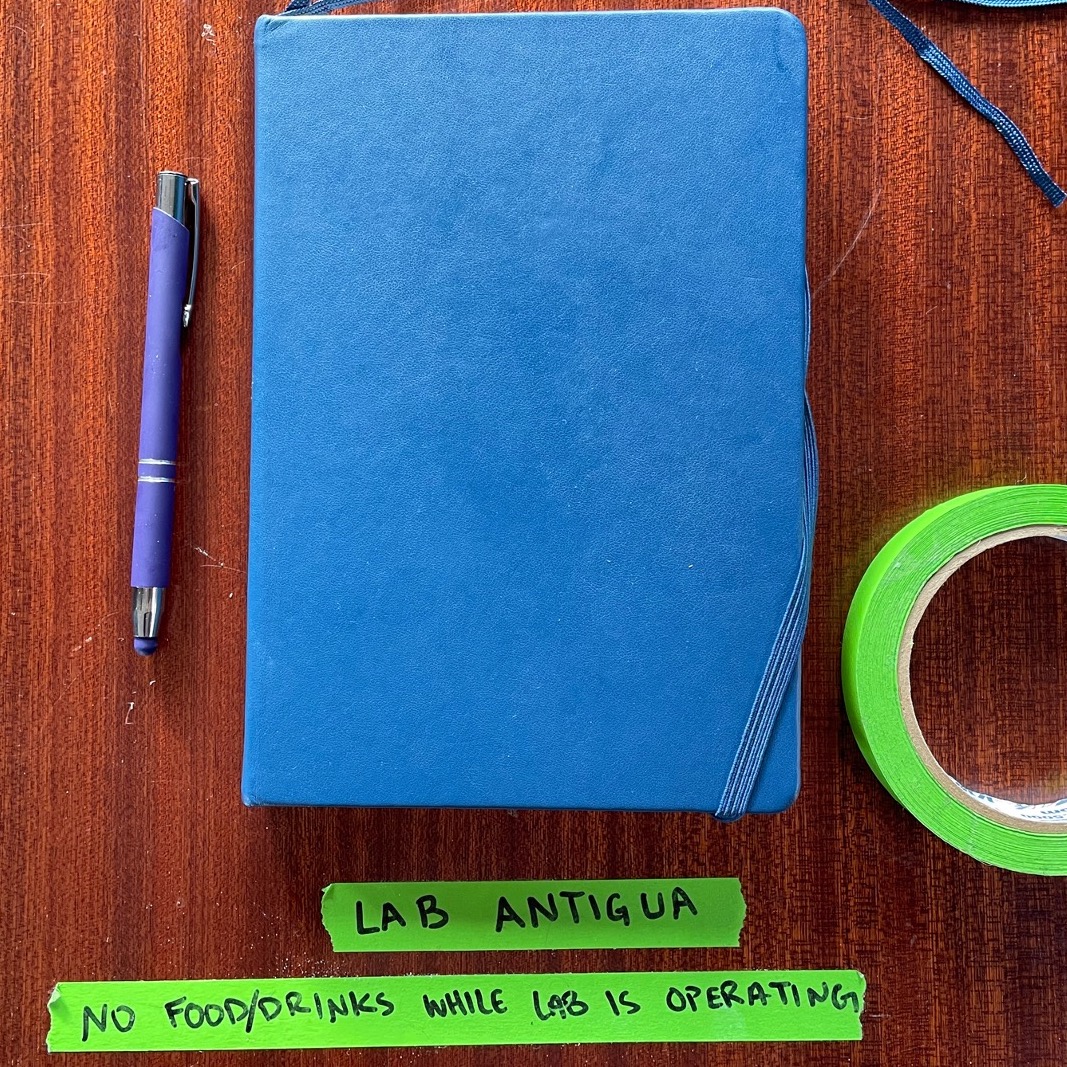 LAB ANTIGUA
NO FOOD/DRINKS WHILE LAB IS OPERATING